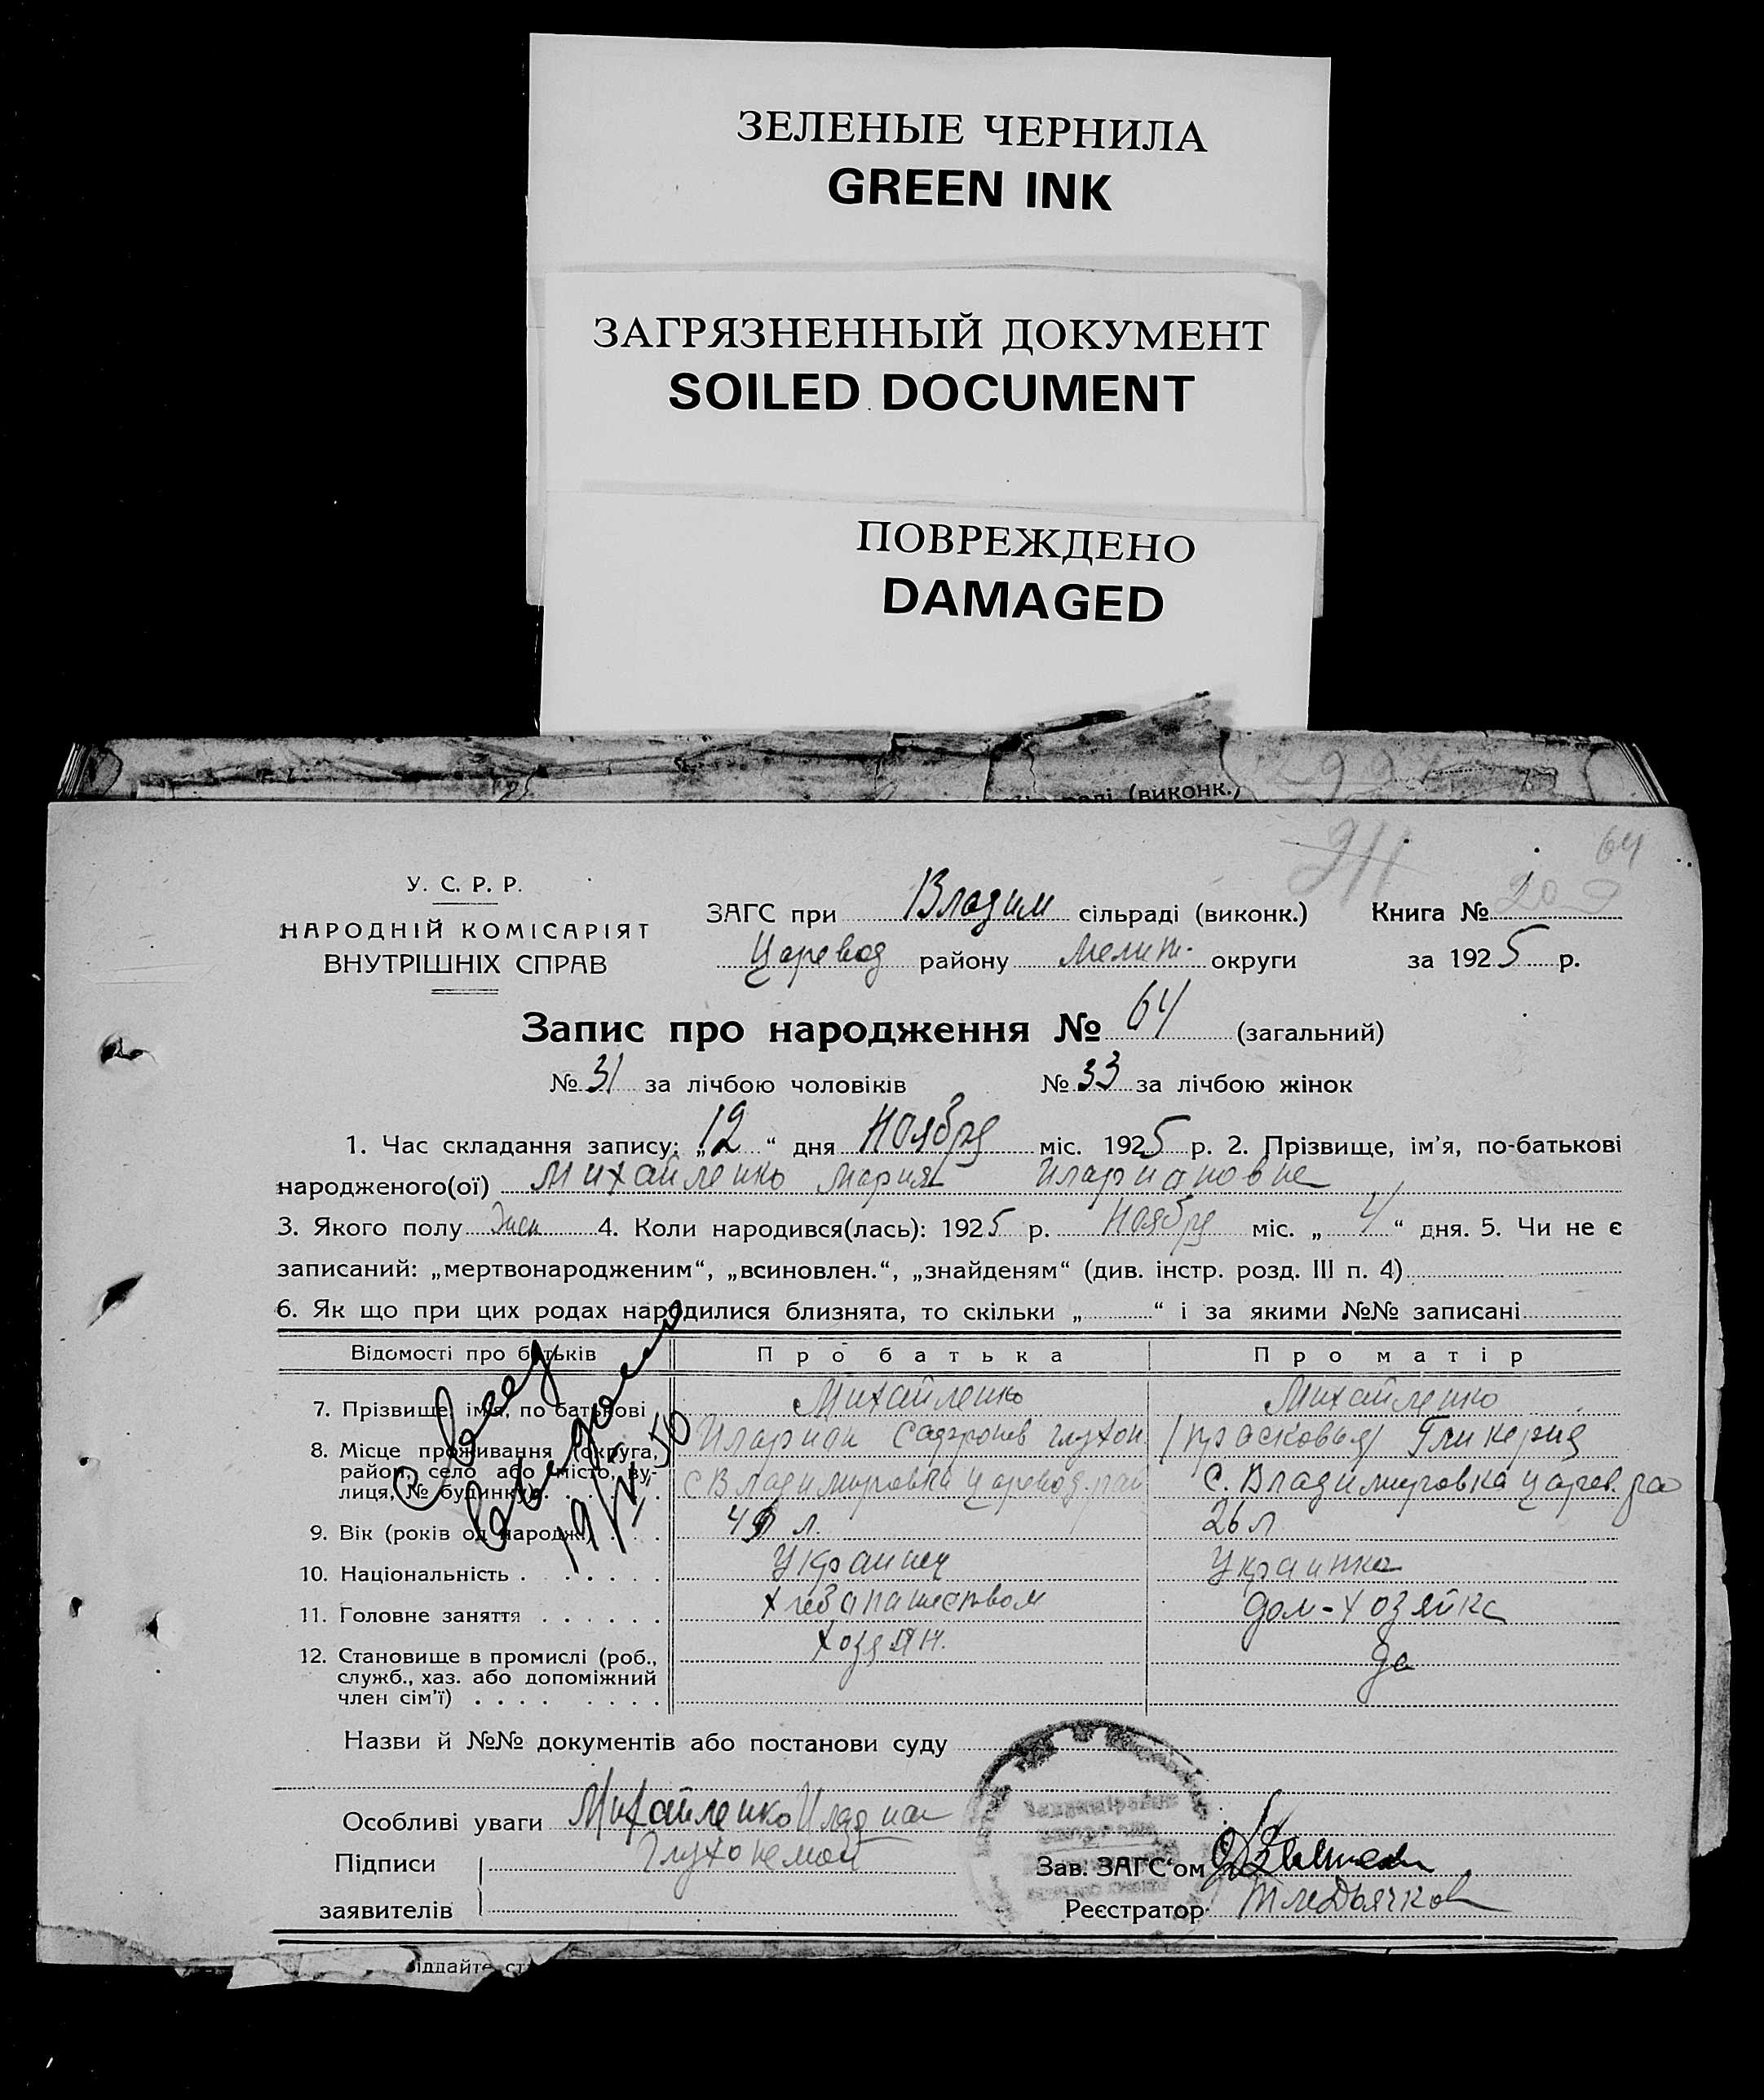 ЗЕЛЕНЫЕ ЧЕРНИЛА
GREEN INK
ЗАГРЯЗНЕННЫЙ ДОКУМЕНТ
SOILED DOCUMENT
ПОВРЕЖДЕНО
DAMAGED
(виконк.)
911
64
У. С. Р. Р.
НАРОДНІЙ КОМІСАРІЯТ
ВНУТРІШНІХ СПРАВ
ЗАГС при Владим сільраді (виконк.) Книга №
Царевод району Мелит. округи за 1925 р.
Запис про народження № 64 (загальний)
№ 31 за лічбою чоловіків № 33 за лічбою жінок
1. Час складання запису: „12“ дня Ноября міс. 1925 р. 2. Прізвище, ім’я, по-батькові
народженого(ої) Михайленко Мария Илариановна
3. Якого полу Жен 4. Коли народився(лась): 1925 р. Ноября міс. „4“ дня. 5. Чи не є
записаний: „мертвонародженим“, „всиновлен.“, „знайденям“ (див. інстр. розд. III п. 4)
6. Як що при цих родах народилися близнята, то скільки „ “ і за якими №№ записані
Відомості про батьків Про батька Про матір
7. Прізвище, ім’я, по батькові Михайленко Михайленко
Иларион глухон /Прасковья/ Гликерия
8. Місце проживання (округа, район, село або місто, вулиця, № будинку) с Владимировка Царевод. рай с. Владимировка Царев. ра
9. Вік (років од народж.) л. 26 л
10. Національність Украинец Украинка
11. Головне заняття хлебопашеством дом-хозяйка
12. Становище в промислі (роб., хозяин. да
служб., хаз. або допоміжний
член сім’ї)
Назви й №№ документів або постанови суду
Особливі уваги Михайленко Илариан
Підписи глухонемой Зав. ЗАГС‘ом
заявителів Реєстратор
іддайте